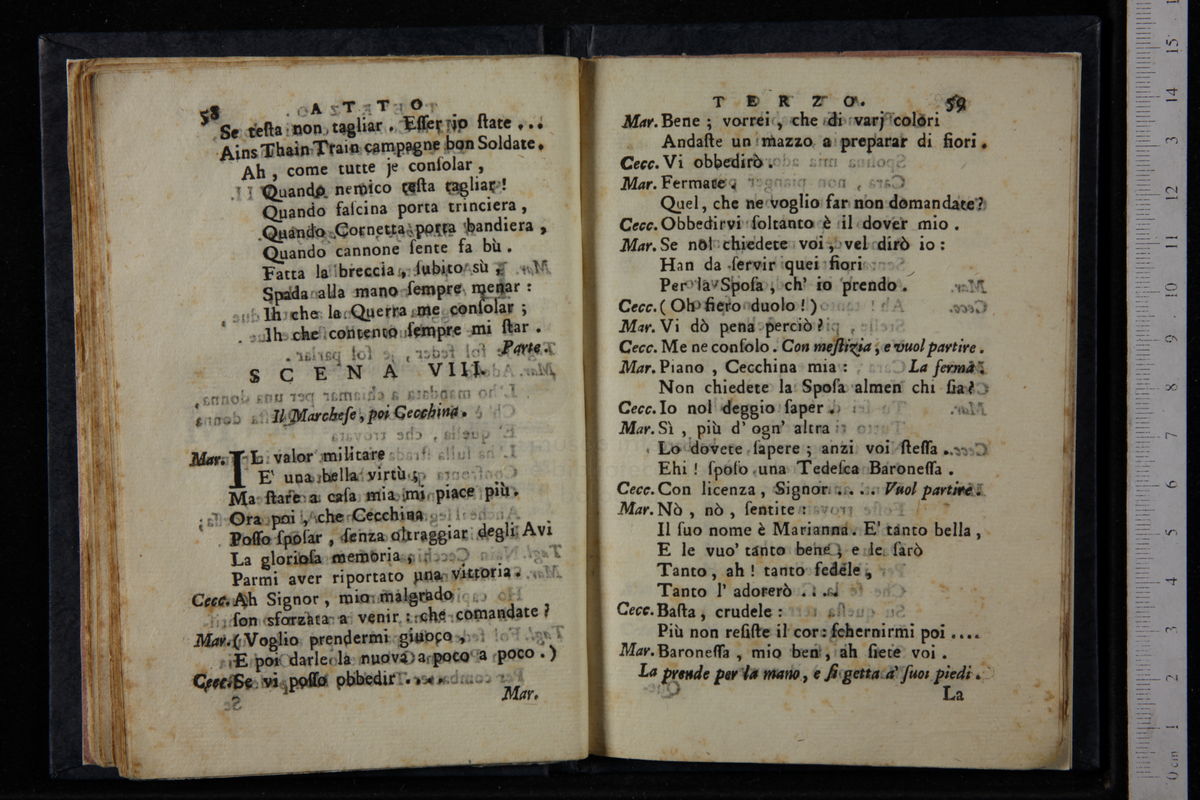 58
ATTO
Se teſta non tagliar. Eſſer jo ſtate...
Ains Thain Train campagne bon Soldate.
Ah, come tutte je conſolar,
Quando nemico teſta tagliar!
Quando faſcina porta trinciera,
Quando Cornetta porta bandiera,
Quando cannone ſente fa bù.
Fatta la breccia, ſubito sù,
Spada alla mano ſempre menar:
Ih che la Querra me conſolar;
Ih che contento ſempre mi ſtar.
Parte.
SCENA VIII.
Il Marcheſe, poi Cecchina.
Mar. IL valor militare
E' una bella virtù;
Ma ſtare a caſa mia mi piace più.
Ora poi, che Cecchina
Poſſo ſpoſar, ſenza oltraggiar degli Avi
La glorioſa memoria,
Parmi aver riportato una vittoria.
Cecc. Ah Signor, mio malgrado
ſon sforzata a venir: che comandate?
Mar. (Voglio prendermi giuoco,
E poi darle la nuova a poco a poco.)
Cecc. Se vi poſſo obbedir....
Mar.
TERZO.
59
Mar. Bene; vorrei, che di varj colori
Andaſte un mazzo a preparar di fiori.
Cecc. Vi obbedirò.
Mar. Fermate.
Quel, che ne voglio far non domandate?
Cecc. Obbedirvi ſoltanto è il dover mio.
Mar. Se nol chiedete voi, vel dirò io:
Han da ſervir quei fiori
Per la Spoſa, ch' io prendo.
Cecc. (Oh fiero duolo!)
Mar. Vi dò pena perciò?
Cecc. Me ne conſolo. Con meſtizia, e vuol partire.
Mar. Piano, Cecchina mia: La ferma.
Non chiedete la Spoſa almen chi ſia?
Cecc. Io nol deggio ſaper.
Mar. Sì, più d' ogn' altra
Lo dovete ſapere; anzi voi ſteſſa..
Ehi! ſpoſo una Tedeſca Baroneſſa.
Cecc. Con licenza, Signor..... Vuol partire.
Mar. Nò, nò, ſentite:
Il ſuo nome è Marianna. E' tanto bella,
E le vuo' tanto bene, e le ſarò
Tanto, ah! tanto fedele,
Tanto l' adorerò....
Cecc. Baſta, crudele:
Più non reſiſte il cor: ſchernirmi poi....
Mar. Baroneſſa, mio ben, ah ſiete voi.
La prende per la mano, e ſi getta a' ſuoi piedi.
La
0 cm 1 2 3 4 5 6 7 8 9 10 11 12 13 14 15